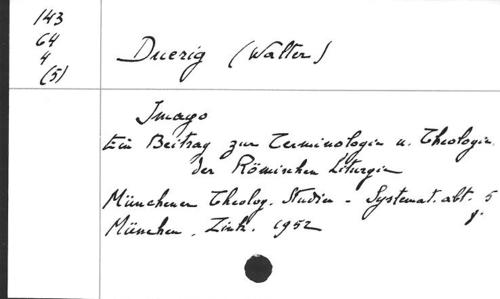 143
64
4
(5)
Duerig (Walter)
Imago
Ein Beitrag zur Terminologie u. Theologie
der Römischen Liturgie
Münchener Theolog. Studien - Systemat. abt. 5
München, Zink. 1952